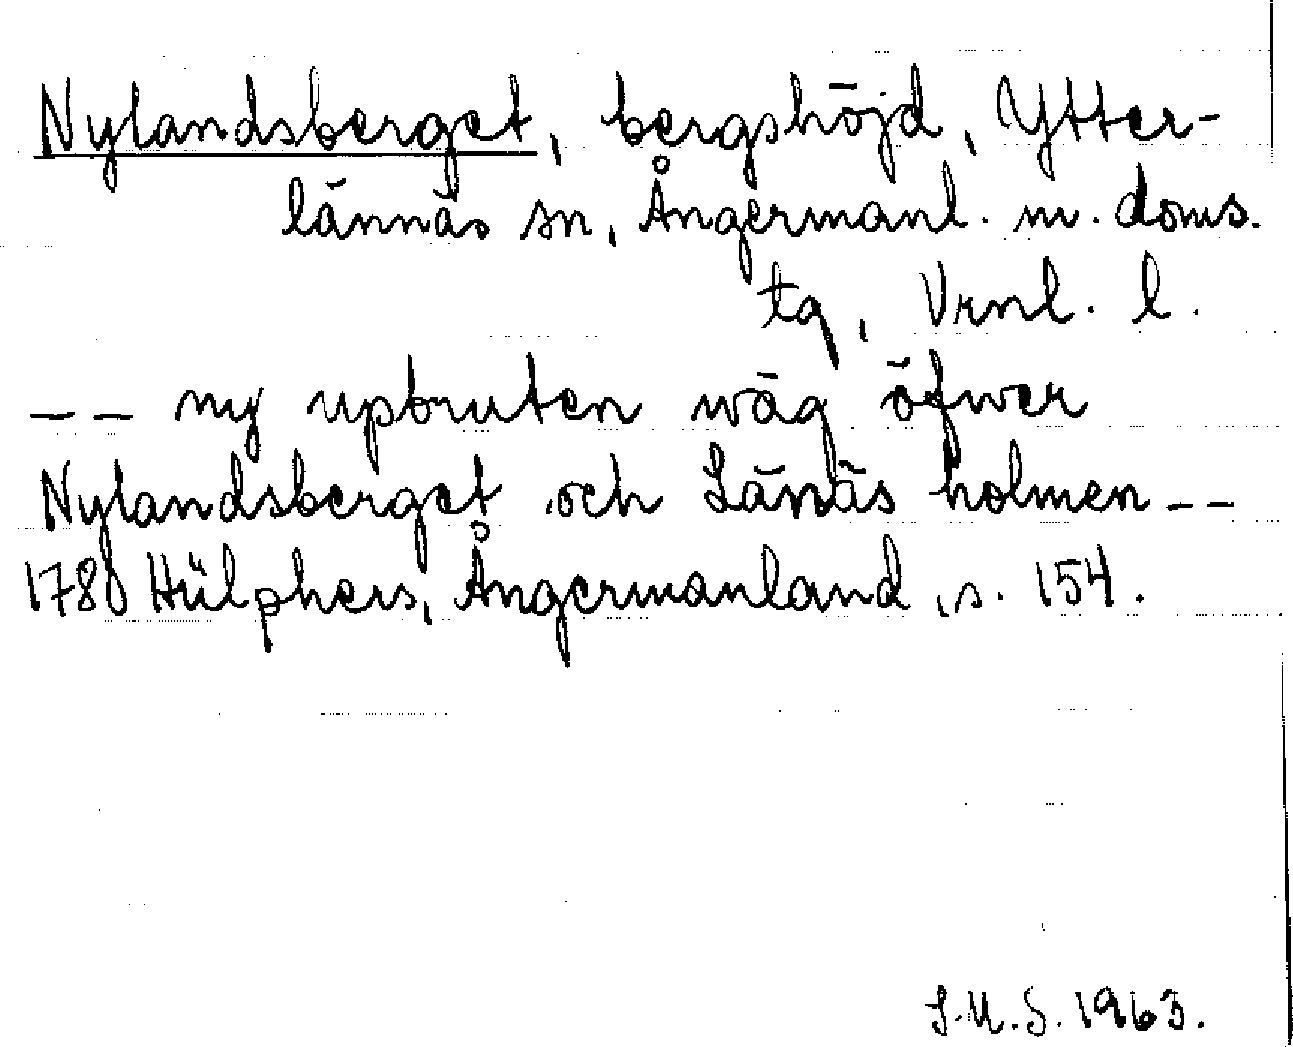 Nylandsberget, bergshöjd, Ytter-
lännäs sn, Ångermanl. m. doms.
tg, Vrnl. l.
-- ny upbruten wäg öfwer
Nylandsberget och Länäs holmen --
1780 Hülphers, Ångermanland, s. 154.
S.U.S. 1963.